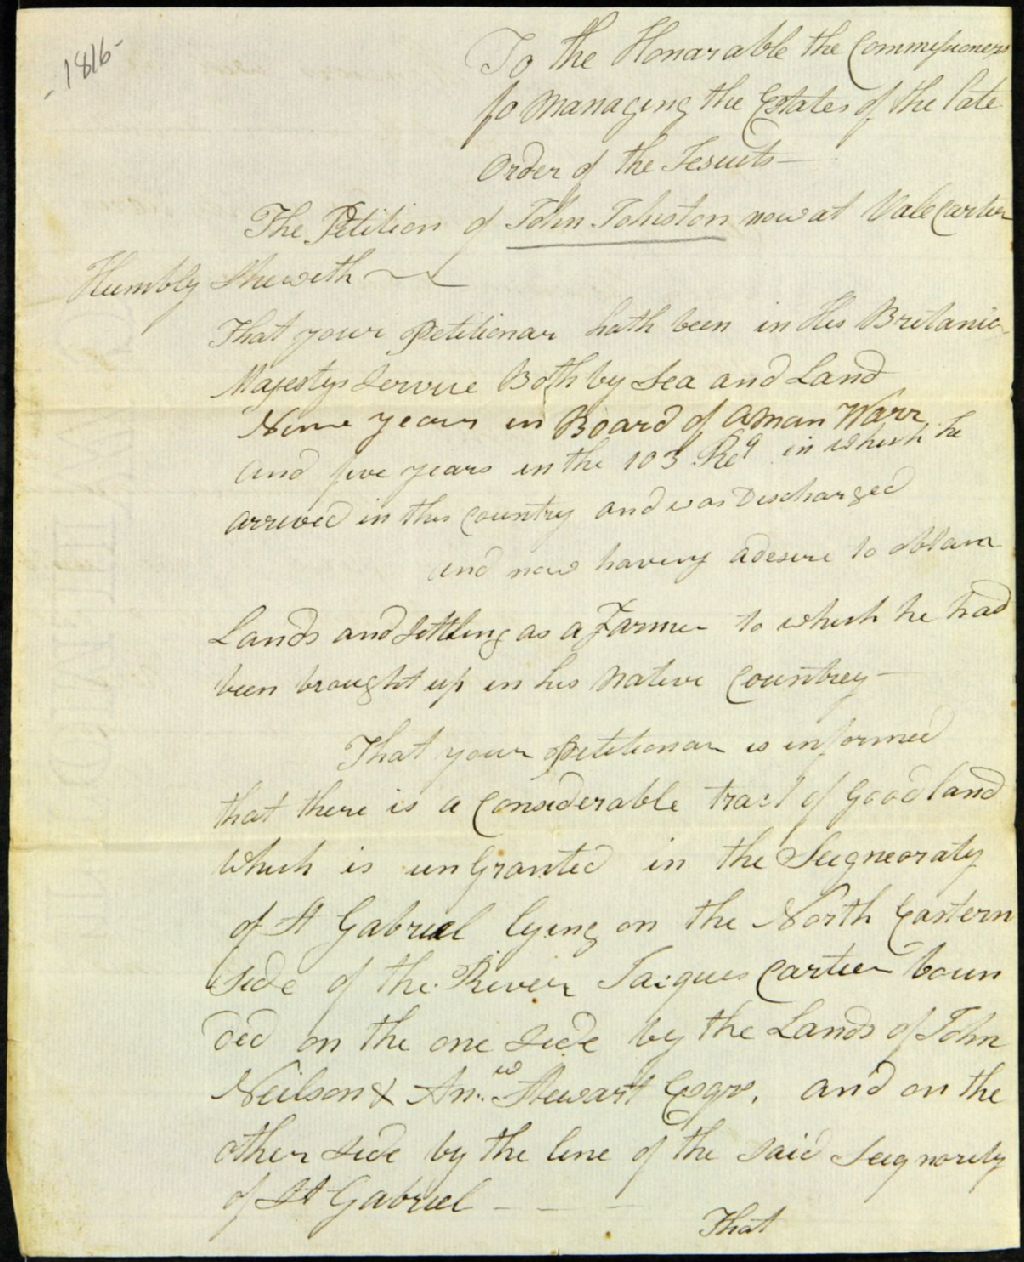 1816-
To the Honarable the Commissioners
fo managing the Estates of the late
Order of the Jesuets—
The Petition of John Johston now at Valecartier
Humbly Sheweth
That your Petitionar hath been in His Britanic
Majestys Service Both by Sea and Land
Nine years in Board of aman Warr
and five years in the 103 Regt in which he
arrived in this Country and was Discharged
and now having adesire to obtain
Lands and Settling as a Farmer to which he had
been brought up in his Native Countrey—
That your Petitionar is informed
that there is a Considerable tract of Good land
which is un Granted in the Seigneoraty
of St Gabriel lying on the North Eastern
Side of the River Jacques Cartier boun
ded on the one Side by the Lands of John
Neilson & Anw. Stewart Esqrs. and on the
other Side by the line of the said Seignority
of St Gabriel — — —
That